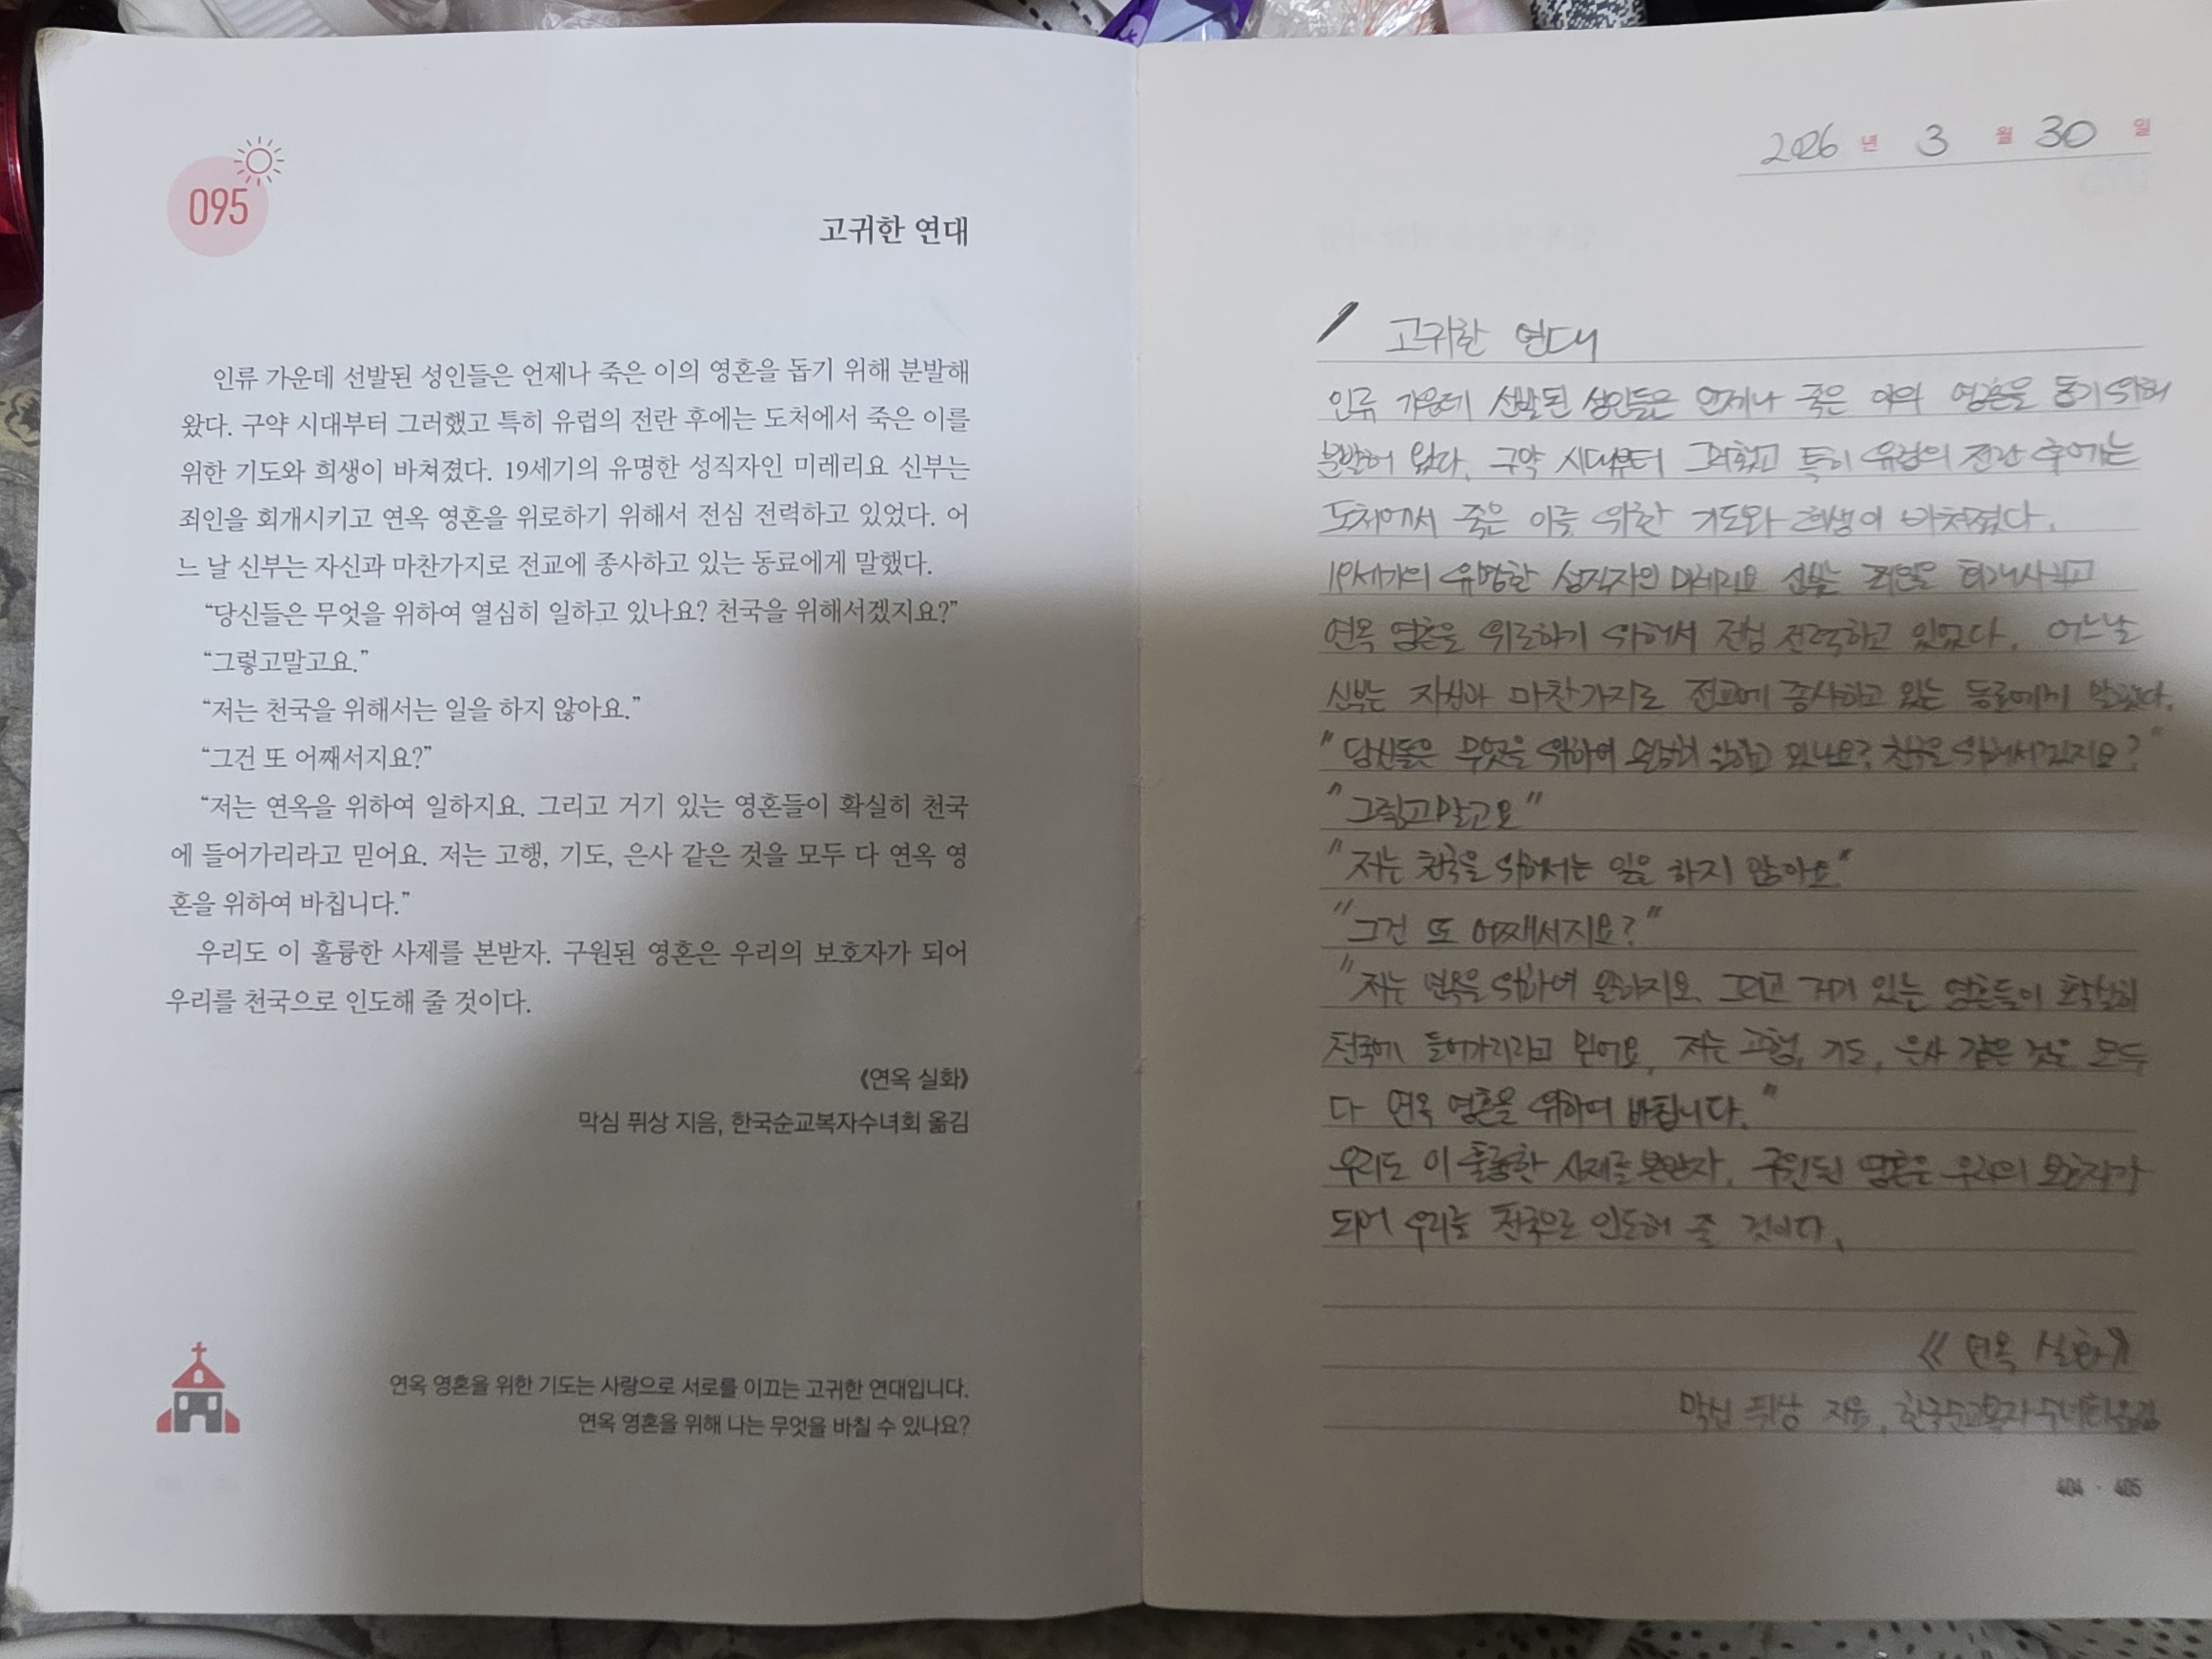 095
고귀한 연대
인류 가운데 선발된 성인들은 언제나 죽은 이의 영혼을 돕기 위해 분발해
왔다. 구약 시대부터 그러했고 특히 유럽의 전란 후에는 도처에서 죽은 이를
위한 기도와 희생이 바쳐졌다. 19세기의 유명한 성직자인 미레리요 신부는
죄인을 회개시키고 연옥 영혼을 위로하기 위해서 전심 전력하고 있었다. 어
느 날 신부는 자신과 마찬가지로 전교에 종사하고 있는 동료에게 말했다.
“당신들은 무엇을 위하여 열심히 일하고 있나요? 천국을 위해서겠지요?”
“그렇고말고요.”
“저는 천국을 위해서는 일을 하지 않아요.”
“그건 또 어째서지요?”
“저는 연옥을 위하여 일하지요. 그리고 거기 있는 영혼들이 확실히 천국
에 들어가리라고 믿어요. 저는 고행, 기도, 은사 같은 것을 모두 다 연옥 영
혼을 위하여 바칩니다.”
우리도 이 훌륭한 사제를 본받자. 구원된 영혼은 우리의 보호자가 되어
우리를 천국으로 인도해 줄 것이다.
《연옥 실화》
막심 퓌상 지음, 한국순교복자수녀회 옮김
연옥 영혼을 위한 기도는 사랑으로 서로를 이끄는 고귀한 연대입니다.
연옥 영혼을 위해 나는 무엇을 바칠 수 있나요?
2026 년 3 월 30 일
고귀한 연대
인류 가운데 선발된 성인들은 언제나 죽은 이의 영혼을 돕기 위해
분발해 왔다. 구약 시대부터 그러했고 특히 유럽의 전란 후에는
도처에서 죽은 이를 위한 기도와 희생이 바쳐졌다.
19세기의 유명한 성직자인 미레리요 신부는 죄인을 회개시키고
연옥 영혼을 위로하기 위해서 전심 전력하고 있었다. 어느날
신부는 자신과 마찬가지로 전교에 종사하고 있는 동료에게 말했다.
"당신들은 무엇을 위하여 열심히 일하고 있나요? 천국을 위해서겠지요?"
"그렇고말고요"
"저는 천국을 위해서는 일을 하지 않아요"
"그건 또 어째서지요?"
"저는 연옥을 위하여 일하지요. 그리고 거기 있는 영혼들이 확실히
천국에 들어가리라고 믿어요. 저는 고행, 기도, 은사 같은 것을 모두
다 연옥 영혼을 위하여 바칩니다."
우리도 이 훌륭한 사제를 본받자. 구원된 영혼은 우리의 보호자가
되어 우리를 천국으로 인도해 줄 것이다.
《연옥 실화》
막심 퓌상 지음, 한국순교복자수녀회 옮김
404 · 405